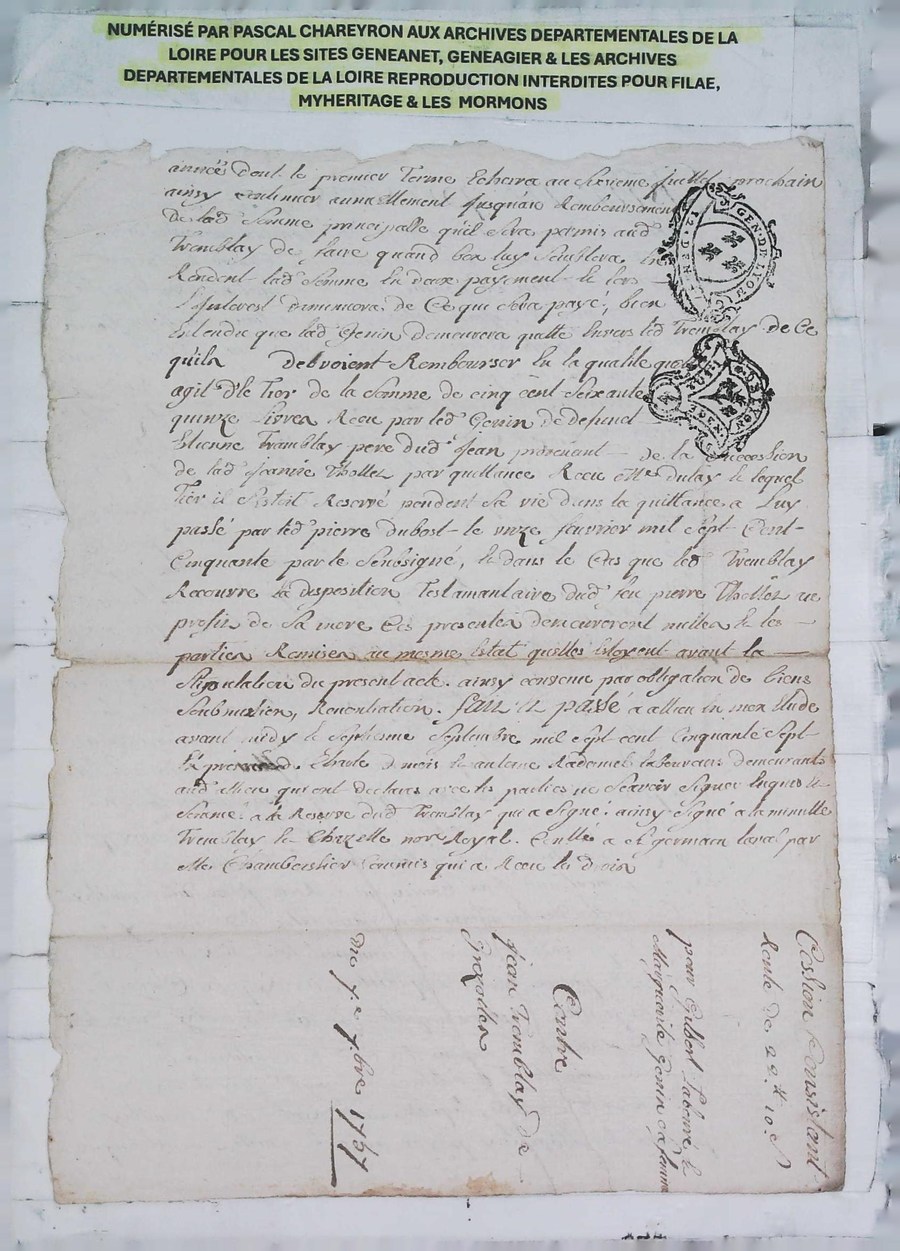 NUMÉRISÉ PAR PASCAL CHAREYRON AUX ARCHIVES DEPARTEMENTALES DE LA
LOIRE POUR LES SITES GENEANET, GENEAGIER & LES ARCHIVES
DEPARTEMENTALES DE LA LOIRE REPRODUCTION INTERDITES POUR FILAE,
MYHERITAGE & LES MORMONS
année dont le premier Terme Echerra au juillet prochain
ainsy continuer annuellement jusquau Remboursement
de lad somme principalle quil sera permis aud
Tremblay de faire quand bon luy semblera En
Rendent lad somme En deux payement Et lors
L'interest diminuera de Ce qui sera payé, bien
Entendu que lad Genin demeurera quitte Envers led Tremblay de Ce
quils debvoient Rembourser En la qualité quon
agit d'le Tier de la somme de cinq cent soixante
quinze livres Receu par led Genin de deffunct
Etienne Tremblay pere dud Jean provenant de la succession
de lad Jeanne Thollet par quittance Receu Me dulay le lequel
Tier il s'estoit Reservé pendent sa vie dans la quittance a Luy
passé par led pierre dubost le unze feuvrier mil sept Cent
Cinquante par le soubsigné, Et dans le Cas que led Tremblay
Recouvre la disposition Testamantaire dud feu pierre Thollet au
profit de sa mere Ces presentes demeureront nulles Et les
parties Remises au mesme Estat quelles Estoyent avant la
Stipulation du present acte. ainsy convenu par obligation de biens
Soubmission, Renontiation. fait Et passé a allieu En mon Etude
avant midy le septiesme septembre mil sept cent Cinquante sept
En Et demeurants
aud allieu qui ont declaré avec les parties ne sçavoir signer Enquis Et
sommé a la Reserve dud Tremblay qui a signé. ainsy signé a la minutte
Tremblay Et Chazelle nore Royal. Contlé a st germain laval par
Me Commis qui a Receu les droix
GEN. DE LYON
Cession Et consistant
Rente de 22 10
pour Gilbert Labouré Et
Marguerite Genin sa femme
Contre
Jean Tremblay de
Grezolles
Du 7e 7bre 1757